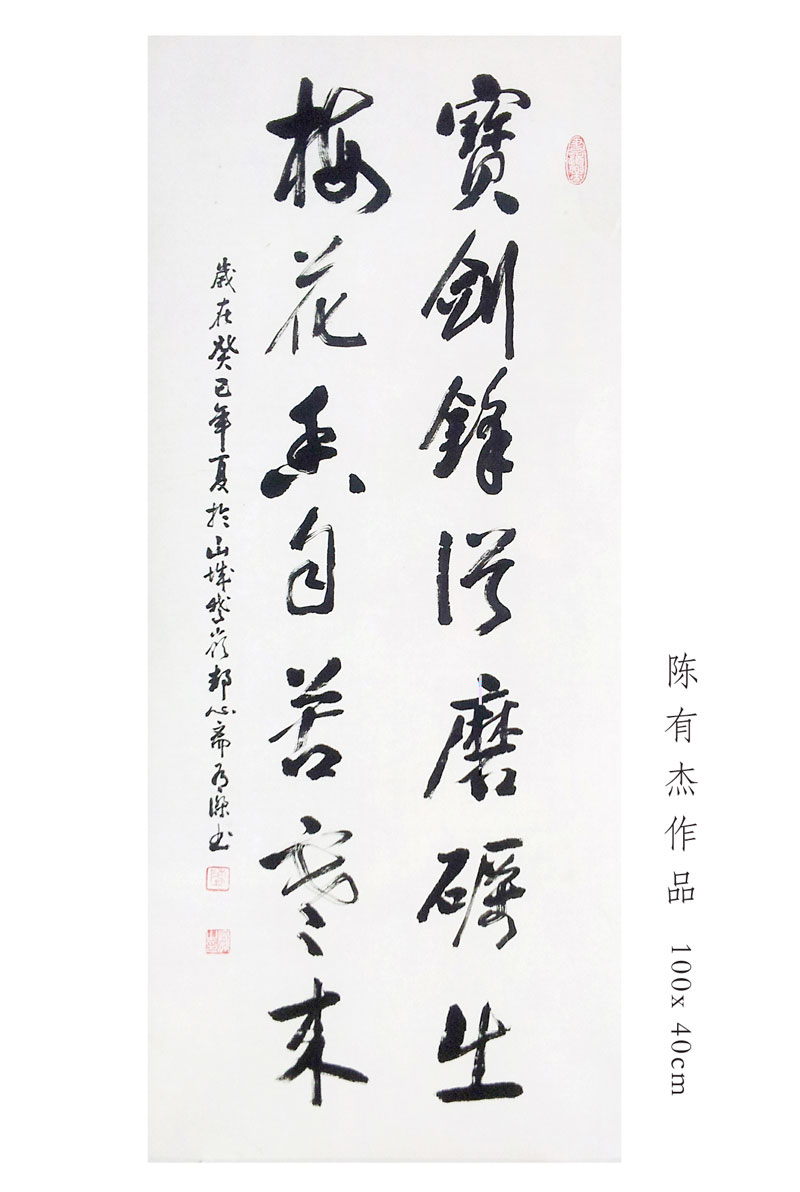 寶劍鋒從磨礪生
梅花香自苦寒来
歲在癸巳年夏於山城心斋有傑书
陈有杰作品 100x 40cm